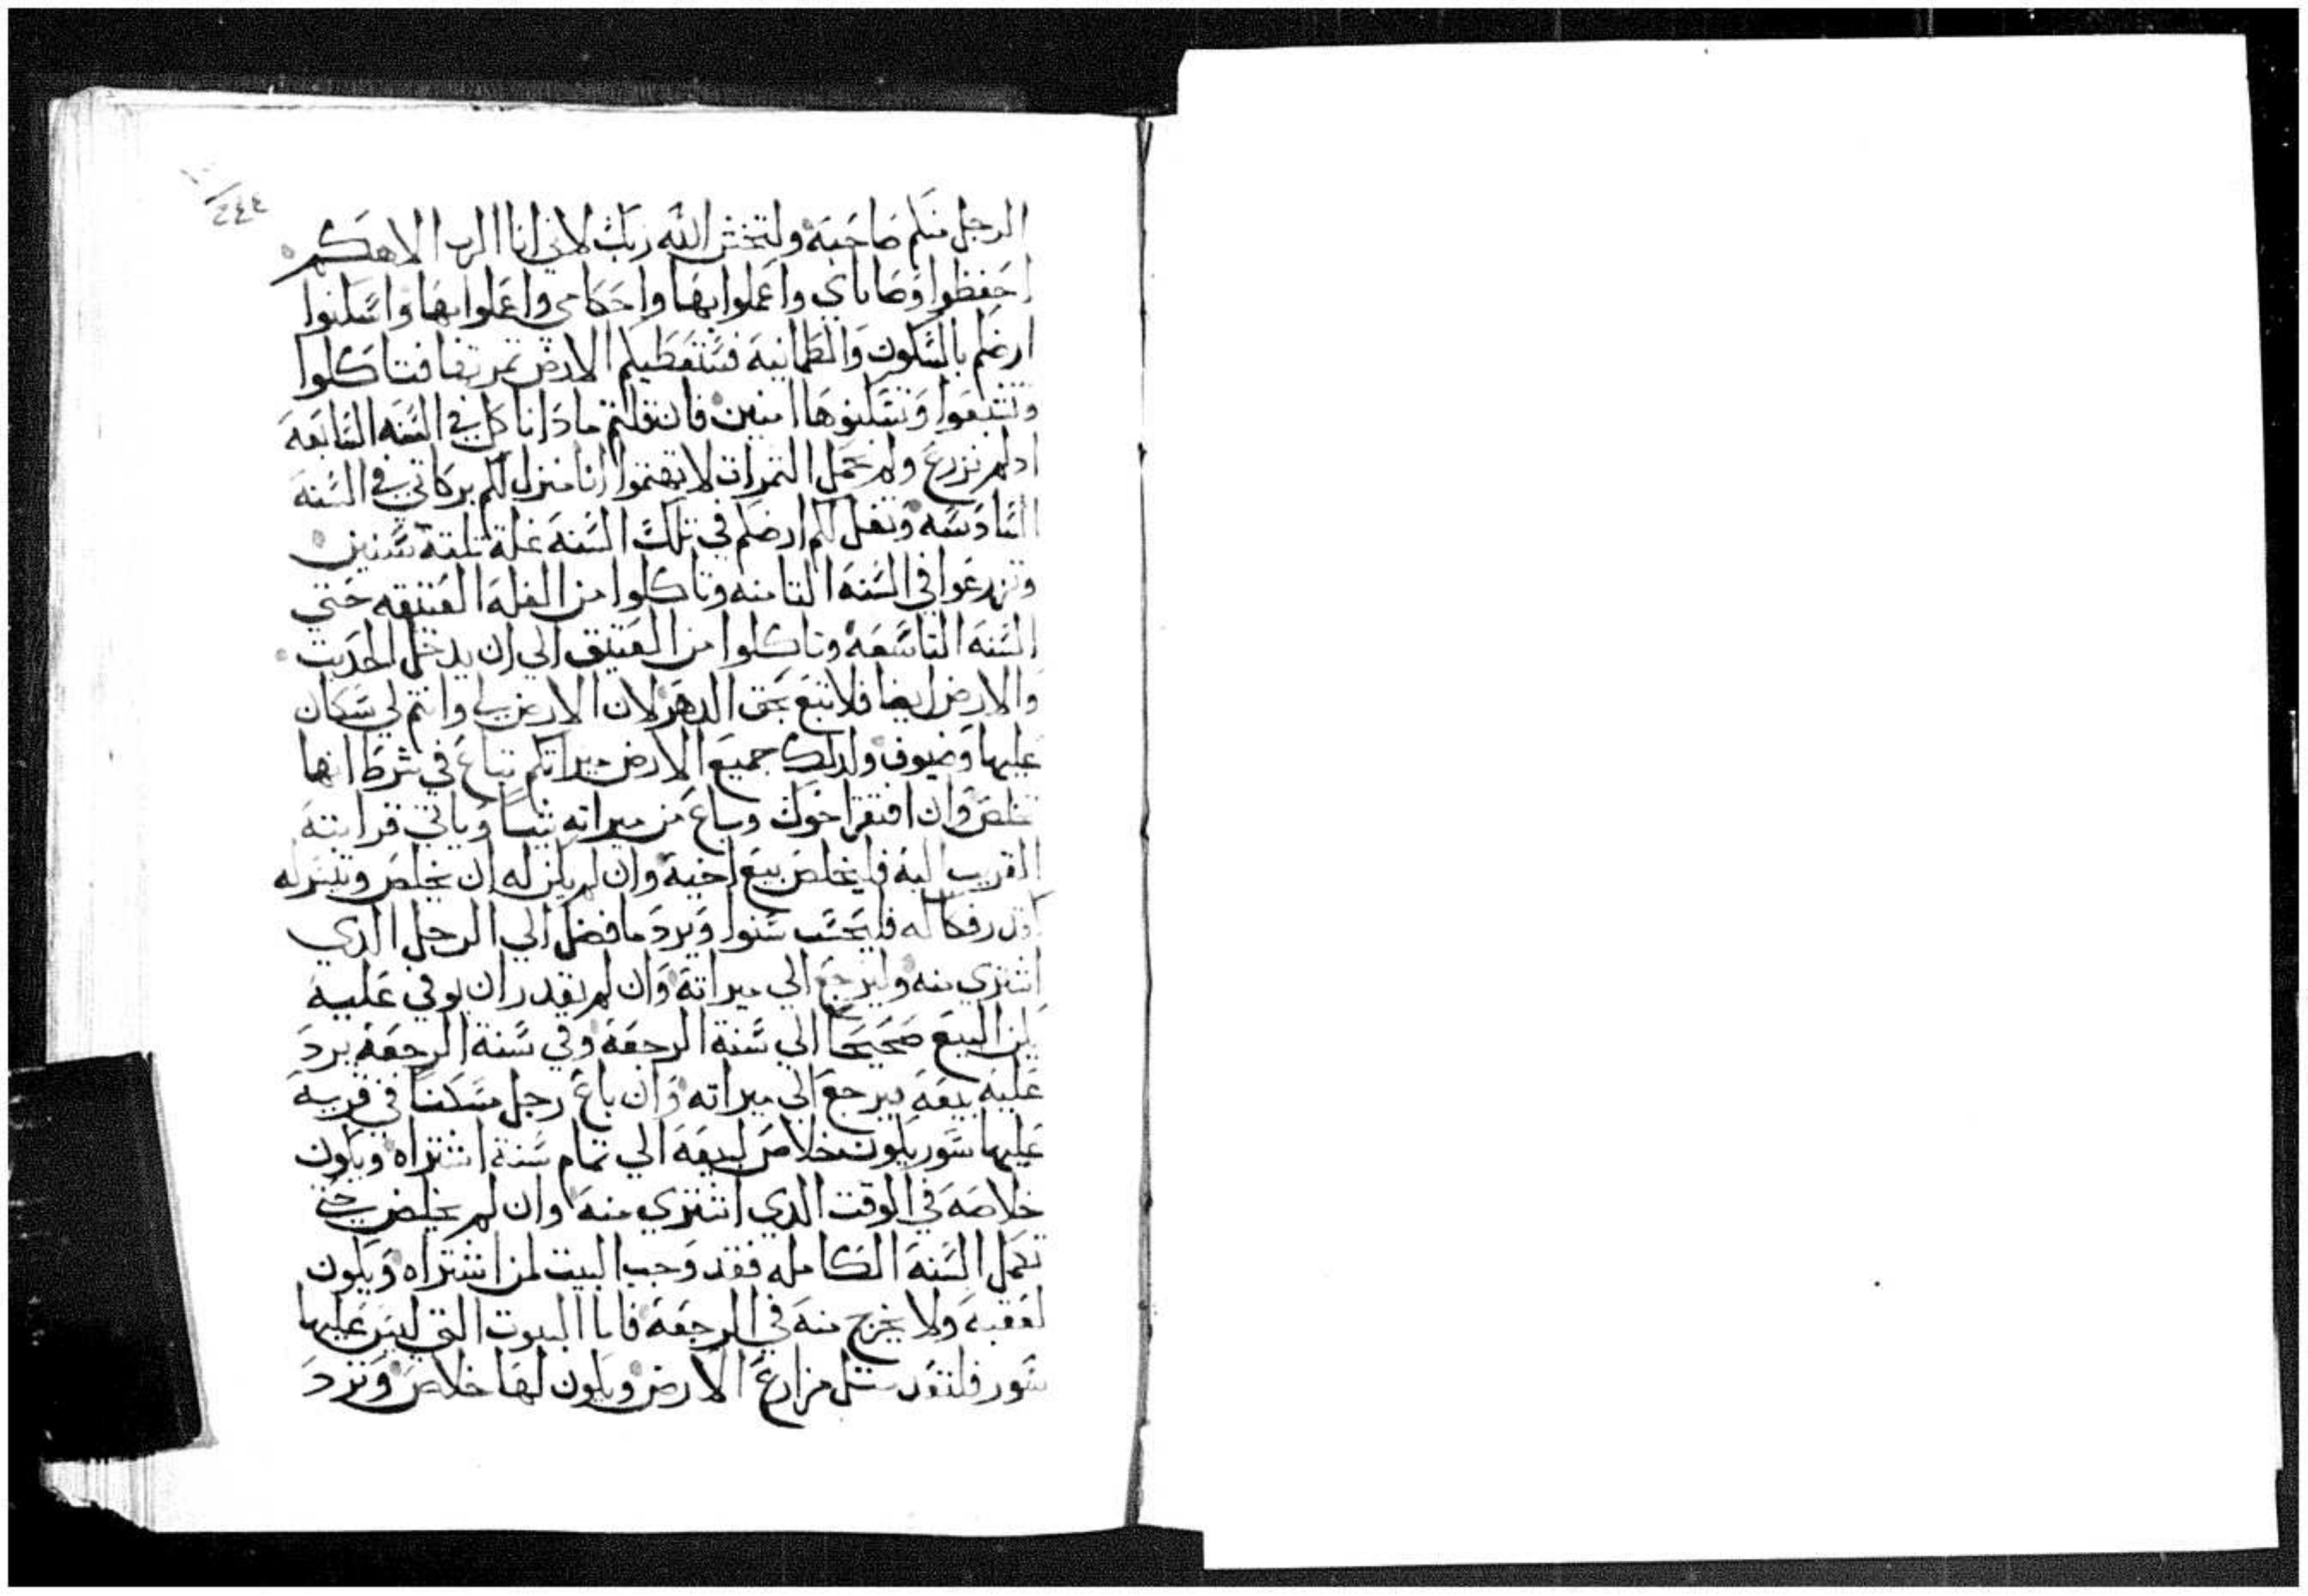 ٢٤٤
الرجل منكم صاحبه ولتخش الله ربك لاني انا الرب الاهكم
احفظوا وصاياي واعملوا بها واحكامي واعملوا بها واسكنوا
ارضكم بالسكون والطمانيه فستعطيكم الارض تمرتها فتاكلوا
وتشبعوا وتسكنوها امنين فان قلتم مادا ناكل في السنه السابعه
اد لم نزرع ولم نحمل التمرات لا تهتموا انا منزل لكم بركاتي في السنه
السادسه وتغل لكم ارضكم في تلك السنه غلة تلتة سنين
وتزرعوا في السنه التامنه وتاكلوا من الغله العتيقه حتي
السنه التاسعه وتاكلوا من العتيق الي ان يدخل الحديت
والارض ايضا فلا تبع بحق الدهر لان الارض لي وانتم لي سكان
عليها وضيوف ولدلك جميع الارض ميراتكم تباع في شرط انها
تخلص وان افتقر اخوك وباع من ميراته شيا وياتي قرابته
القريب اليه فليخلص بيع اخيه وان لم يكن له ان يخلص وتيسر له
فكاكه فليحسب سنوا ويرد ما فضل الي الرجل الدي
اشتري منه وليرجع الي ميراته وان لم يقدر ان يوفي عليه
يكن البيع صحيحا الي سنة الرجعه وفي سنة الرجعه يرد
عليه بيعه فيرجع الي ميراته وان باع رجل مسكنا في قريه
عليها سور يكون خلاص لبيعه الي تمام سنة اشتراه ويكون
خلاصه في الوقت الدي اشتري منه وان لم يخلص حتي
تكمل السنه الكامله فقد وجب البيت لمن اشتراه ويكون
لعقبه ولا يخرج منه في الرجعه فاما البيوت التي ليس عليها
سور فلتعد متل مزارع الارض ويكون لها خلاص وترد